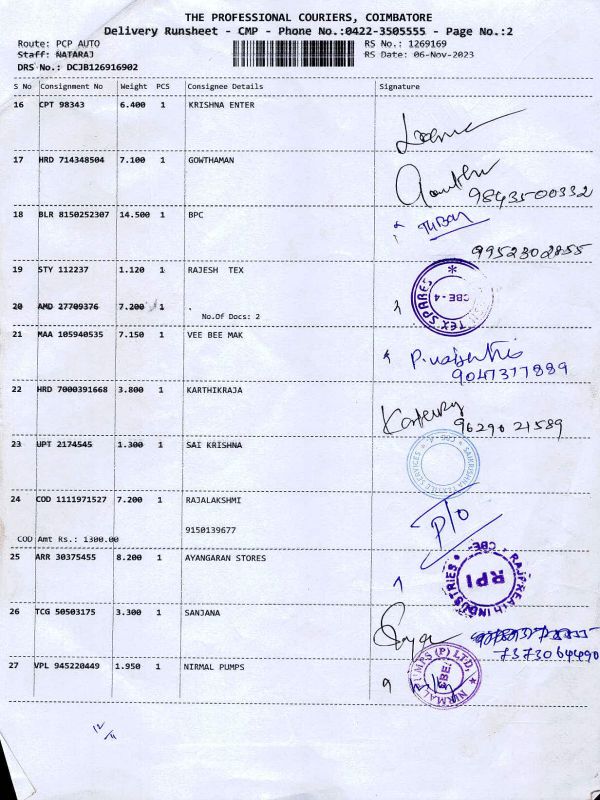 THE PROFESSIONAL COURIERS, COIMBATORE
Delivery Runsheet - CMP - Phone No.:0422-3505555 - Page No.:2
Route: PCP AUTO RS No.: 1269169
Staff: NATARAJ RS Date: 06-Nov-2023
DRS No.: DCJB126916902
S No Consignment No Weight PCS Consignee Details Signature
16 CPT 98343 6.400 1 KRISHNA ENTER
17 HRD 714348504 7.100 1 GOWTHAMAN
9843500332
18 BLR 8150252307 14.500 1 BPC
9952302855
19 STY 112237 1.120 1 RAJESH TEX
TEX SPARES * CBE - 4
20 AMD 27709376 7.200 1 .
No.Of Docs: 2
21 MAA 105940535 7.150 1 VEE BEE MAK
9047377889
22 HRD 7000391668 3.800 1 KARTHIKRAJA
9629021589
23 UPT 2174545 1.300 1 SAI KRISHNA
SAIKRISHNA TEXTILE SERVICES * CBE - 4 *
24 COD 1111971527 7.200 1 RAJALAKSHMI
P/O
9150139677
COD Amt Rs.: 1300.00
25 ARR 30375455 8.200 1 AYANGARAN STORES
INDUSTRIES * CBE- * RPI
26 TCG 50503175 3.300 1 SANJANA
7373064490
27 VPL 945220449 1.950 1 NIRMAL PUMPS
NIRMAL PUMPS (P) LTD, * CBE.
12/11